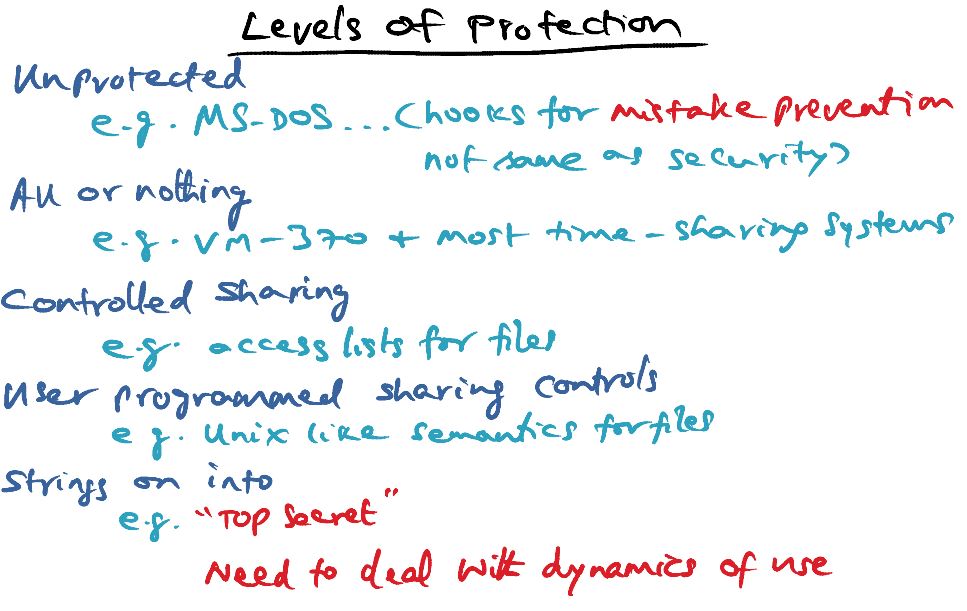 Levels of Protection
Unprotected
e.g. MS-DOS... (hooks for mistake prevention
not same as security)
All or nothing
e.g. VM-370 + most time-sharing systems
Controlled sharing
e.g. access lists for files
User programmed sharing controls
e.g. Unix like semantics for files
Strings on info
e.g. "TOP Secret"
Need to deal with dynamics of use